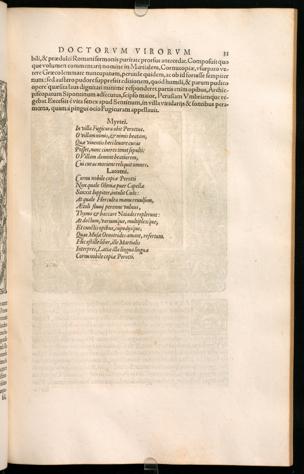 DOCTORVM VIRORVM 33
bili, & prædulci Romani sermonis puritate prorsus antecedat. Composuit quo
que volumen commentarij nomine in Martialem, Cornucopiæ, usurpato vete
tere Græco lemmate nuncupatum, perutile quidem, ac ob id forsasse sempiter
num: sed austero pudore suppressit editionem, quod humili, & parum pudico
opere quæsita laus dignitati minime responderet; partis enim opibus, & Archi
episcoporum Sipontinum adlectus, Scipio maior, Perusiam Vmbriamque re-
gebat. Excessit è vita senex apud Sentinum, in villa viridarijs & fontibus pera-
mœna, quam à pingui ocio Fugicuram appellauit.
Myrtei.
In villa Fugicura obit Perottus.
O villam nimis, & nimis beatam,
Quæ viuentis hera leuare curas
Posset, nunc cineres tenet sepulti:
O villam domino beatiorem,
Cui curas moriens reliquit omnes.
Latomi.
Cornu nobile copiæ Perotti
Non quale Olenia puer Capella
Sanxit Iuppiter, intulit Cælo:
At quale Herculea manu reuulsum,
Ætoli fluuij perenne vulnus,
Thymo & baccare Naiades replerunt:
At doctum, variumque, multiplexque,
Et cunctis opibus,
Quas Musæ Aonetides amant, refertum.
Hic est ille liber, ille Martialis
Interpres, Latiæ illa lingua linguæ
Cornu nobile copiæ Perotti.